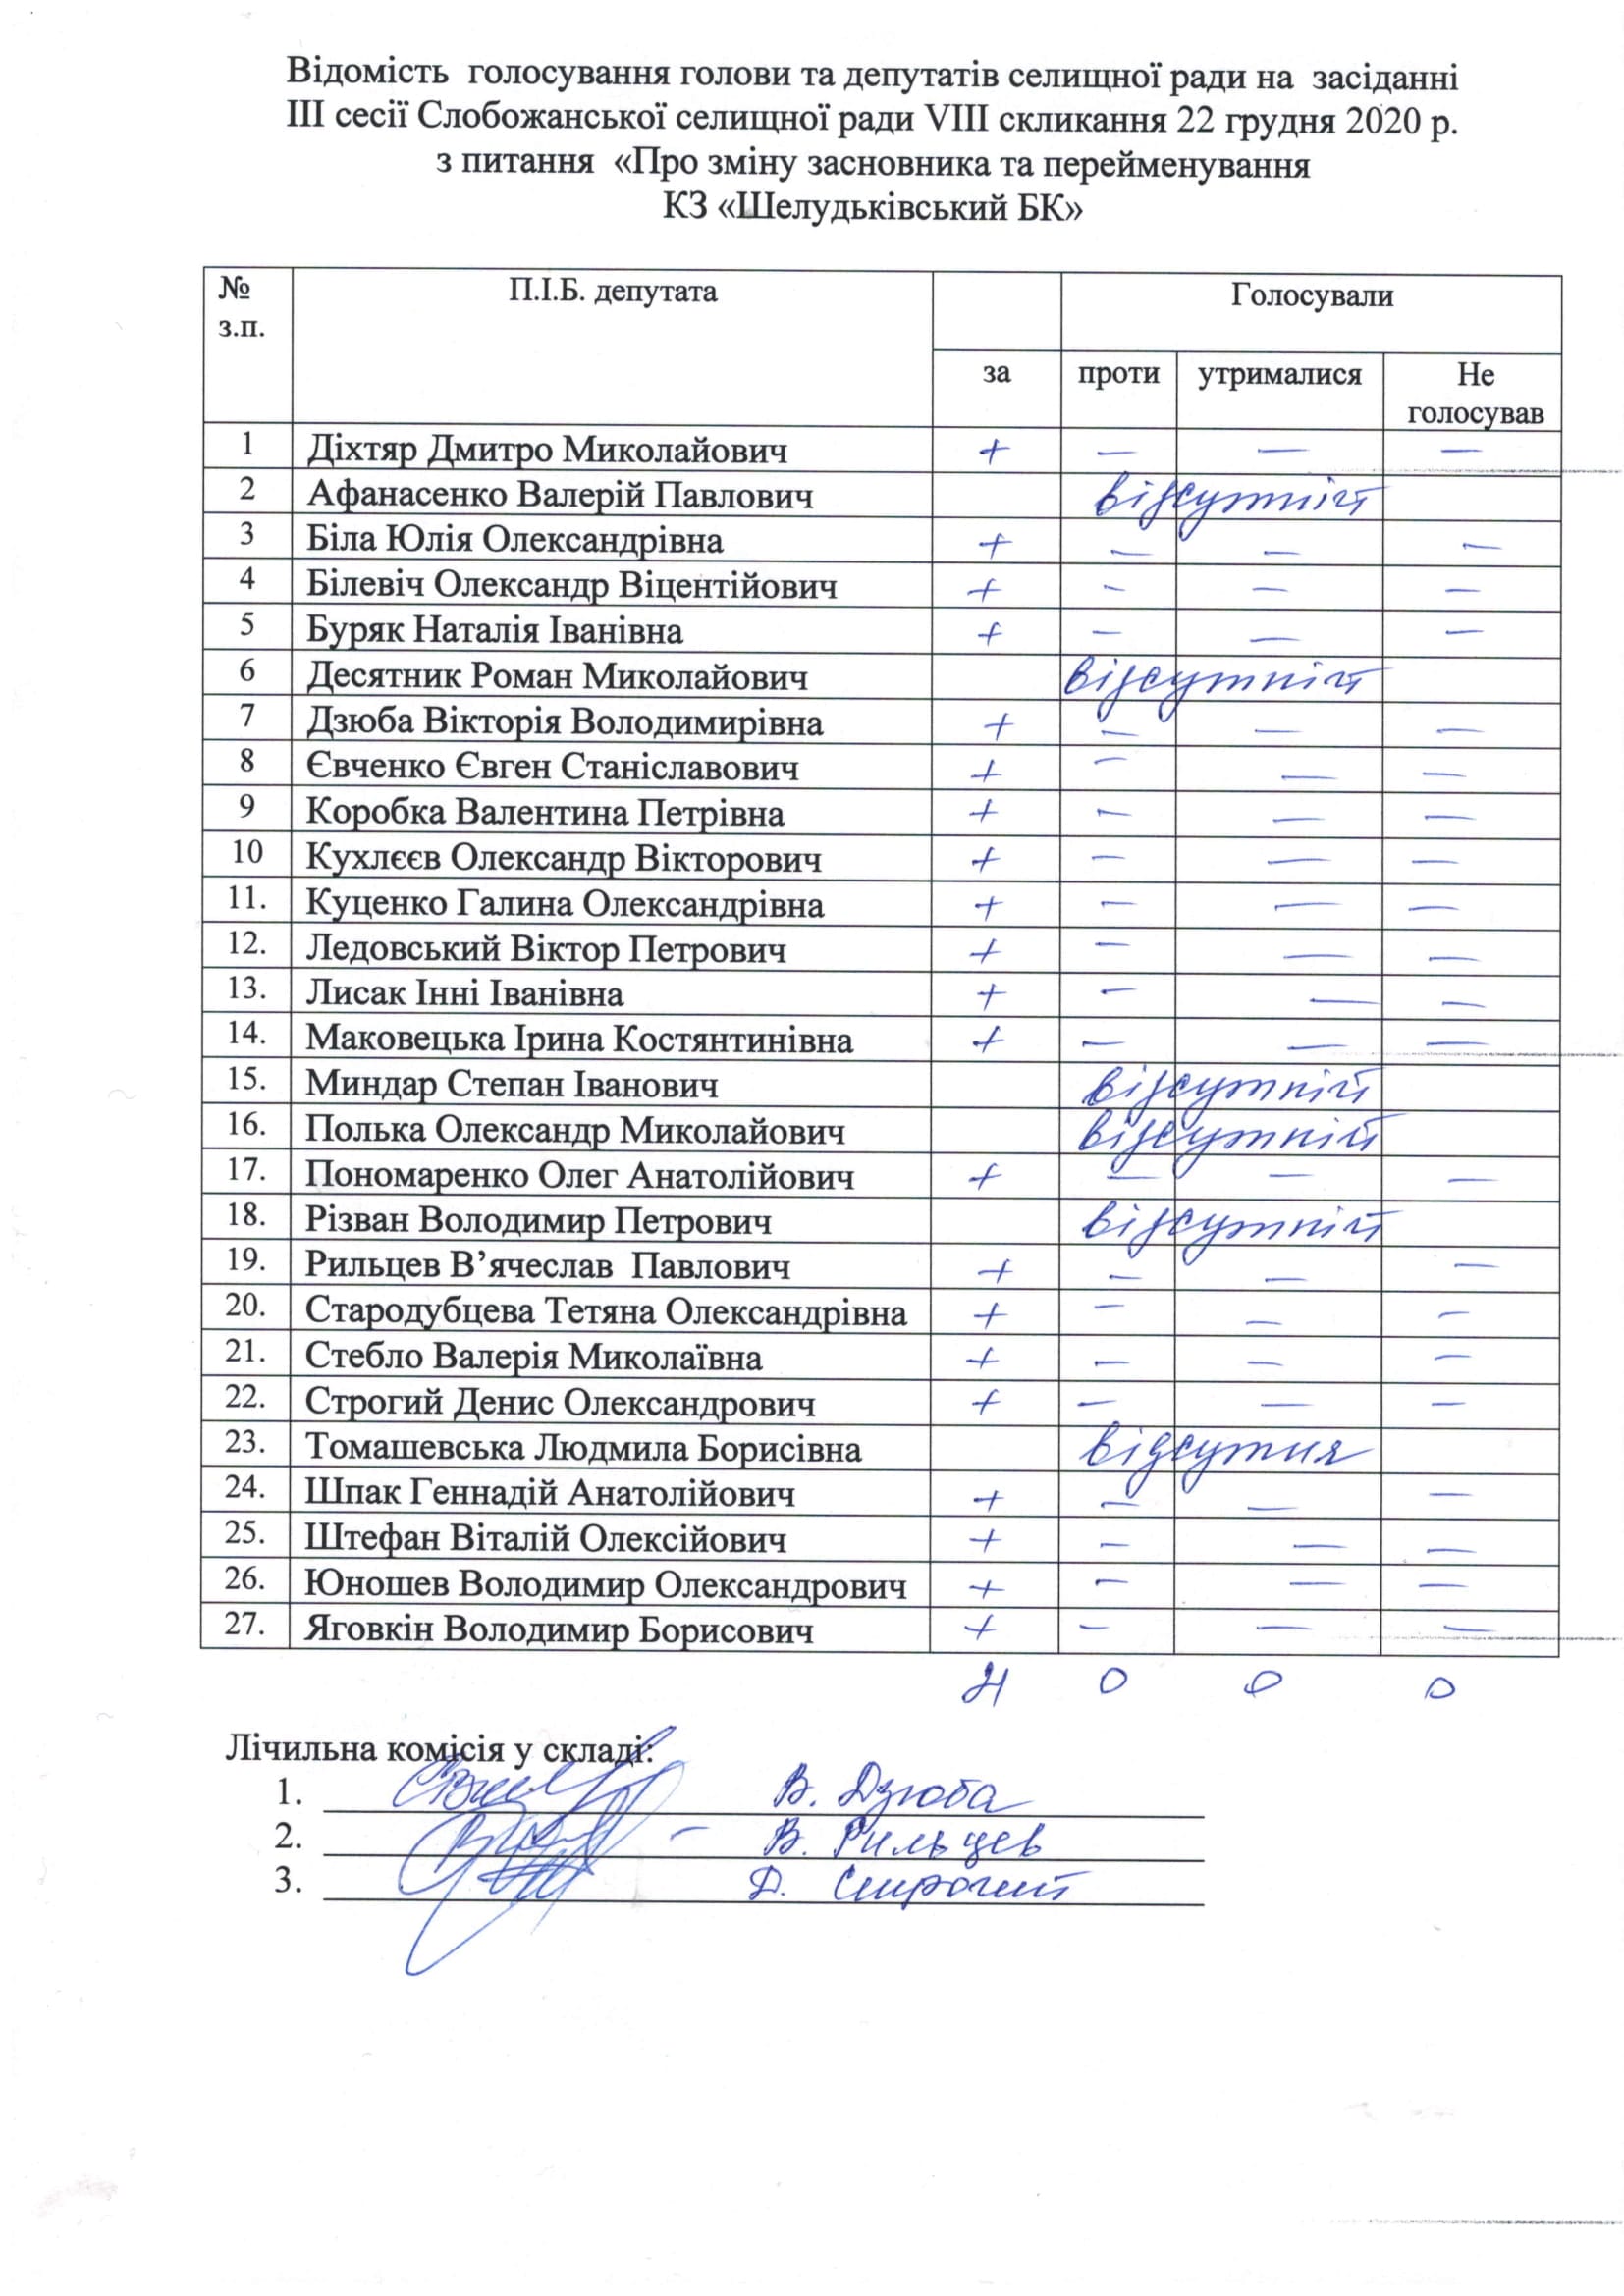 Відомість голосування голови та депутатів селищної ради на засіданні
ІІІ сесії Слобожанської селищної ради VIII скликання 22 грудня 2020 р.
з питання «Про зміну засновника та перейменування
КЗ «Шелудьківський БК»
№ з.п. П.І.Б. депутата Голосували
за проти утрималися Не голосував
1 Діхтяр Дмитро Миколайович + — — —
2 Афанасенко Валерій Павлович відсутній
3 Біла Юлія Олександрівна + — — —
4 Білевіч Олександр Віцентійович + — — —
5 Буряк Наталія Іванівна + — — —
6 Десятник Роман Миколайович відсутній
7 Дзюба Вікторія Володимирівна + — — —
8 Євченко Євген Станіславович + — — —
9 Коробка Валентина Петрівна + — — —
10 Кухлєєв Олександр Вікторович + — — —
11. Куценко Галина Олександрівна + — — —
12. Ледовський Віктор Петрович + — — —
13. Лисак Інні Іванівна + — — —
14. Маковецька Ірина Костянтинівна + — — —
15. Миндар Степан Іванович відсутній
16. Полька Олександр Миколайович відсутній
17. Пономаренко Олег Анатолійович + — — —
18. Різван Володимир Петрович відсутній
19. Рильцев В’ячеслав Павлович + — — —
20. Стародубцева Тетяна Олександрівна + — — —
21. Стебло Валерія Миколаївна + — — —
22. Строгий Денис Олександрович + — — —
23. Томашевська Людмила Борисівна відсутня
24. Шпак Геннадій Анатолійович + — — —
25. Штефан Віталій Олексійович + — — —
26. Юношев Володимир Олександрович + — — —
27. Яговкін Володимир Борисович + — — —
21 0 0 0
Лічильна комісія у складі:
1. В. Дзюба
2. В. Рильцев
3. Д. Строгий